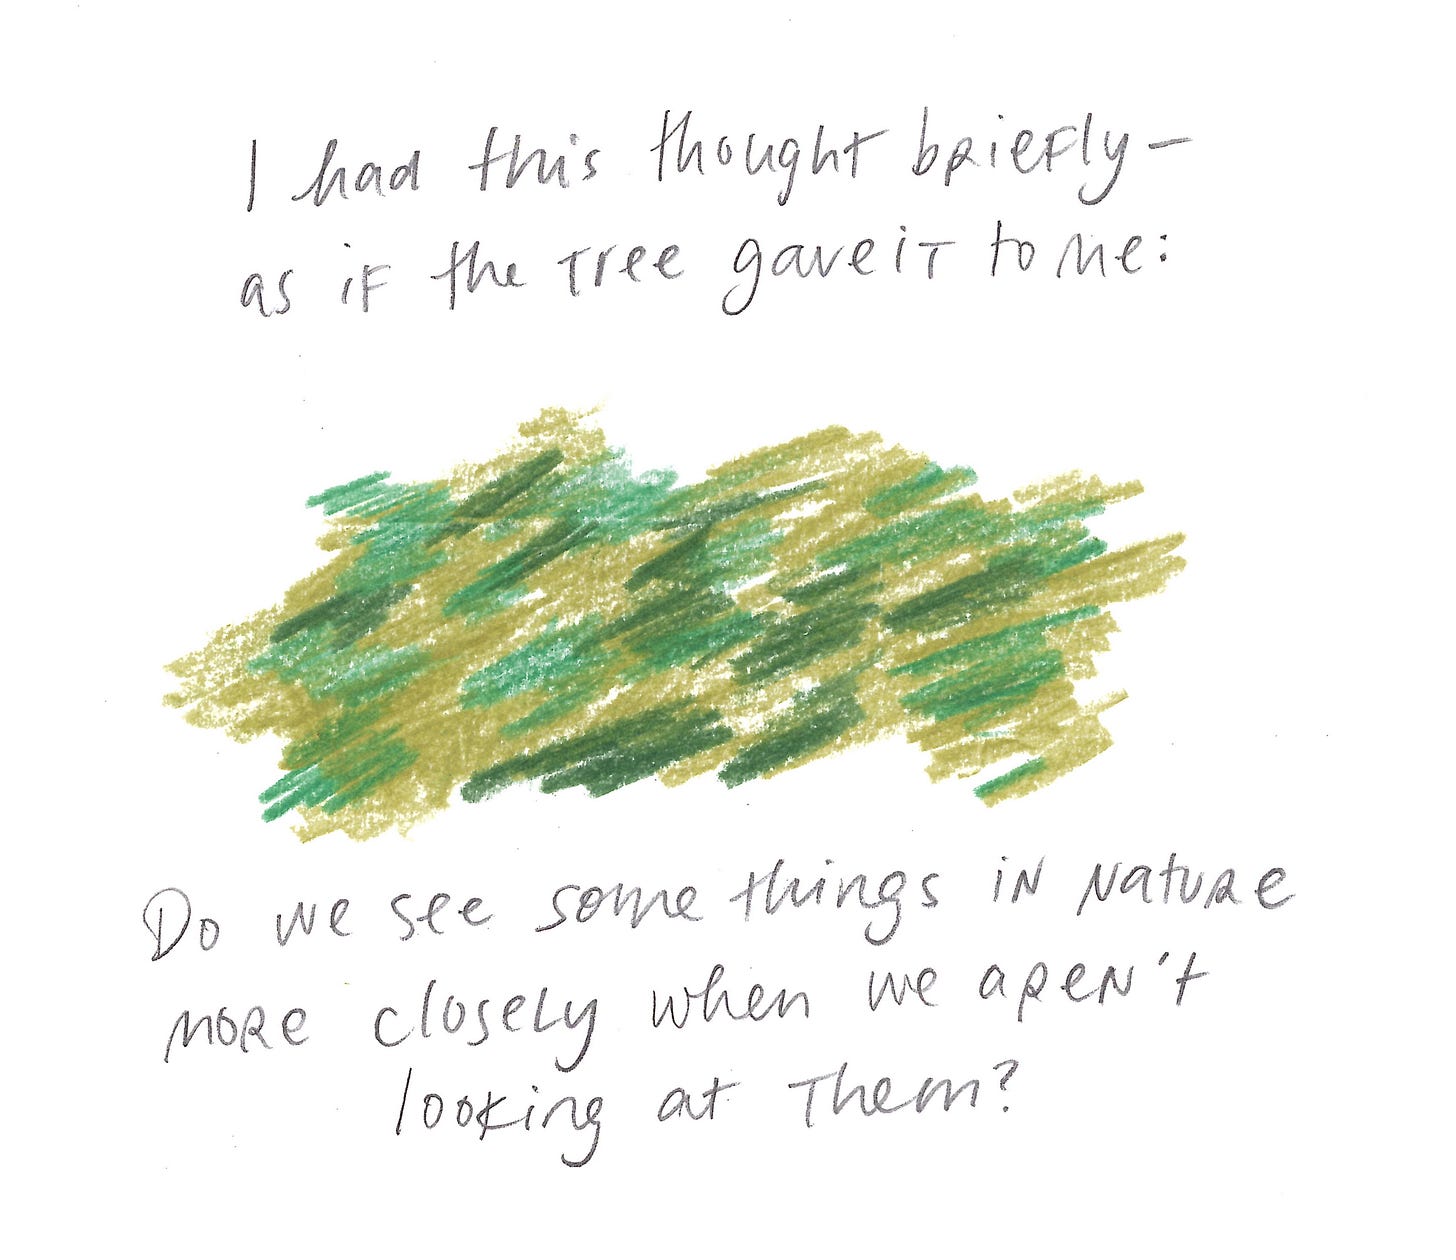 I had this thought briefly —
as if the tree gave it to me:
Do we see some things in nature
more closely when we aren't
looking at them?